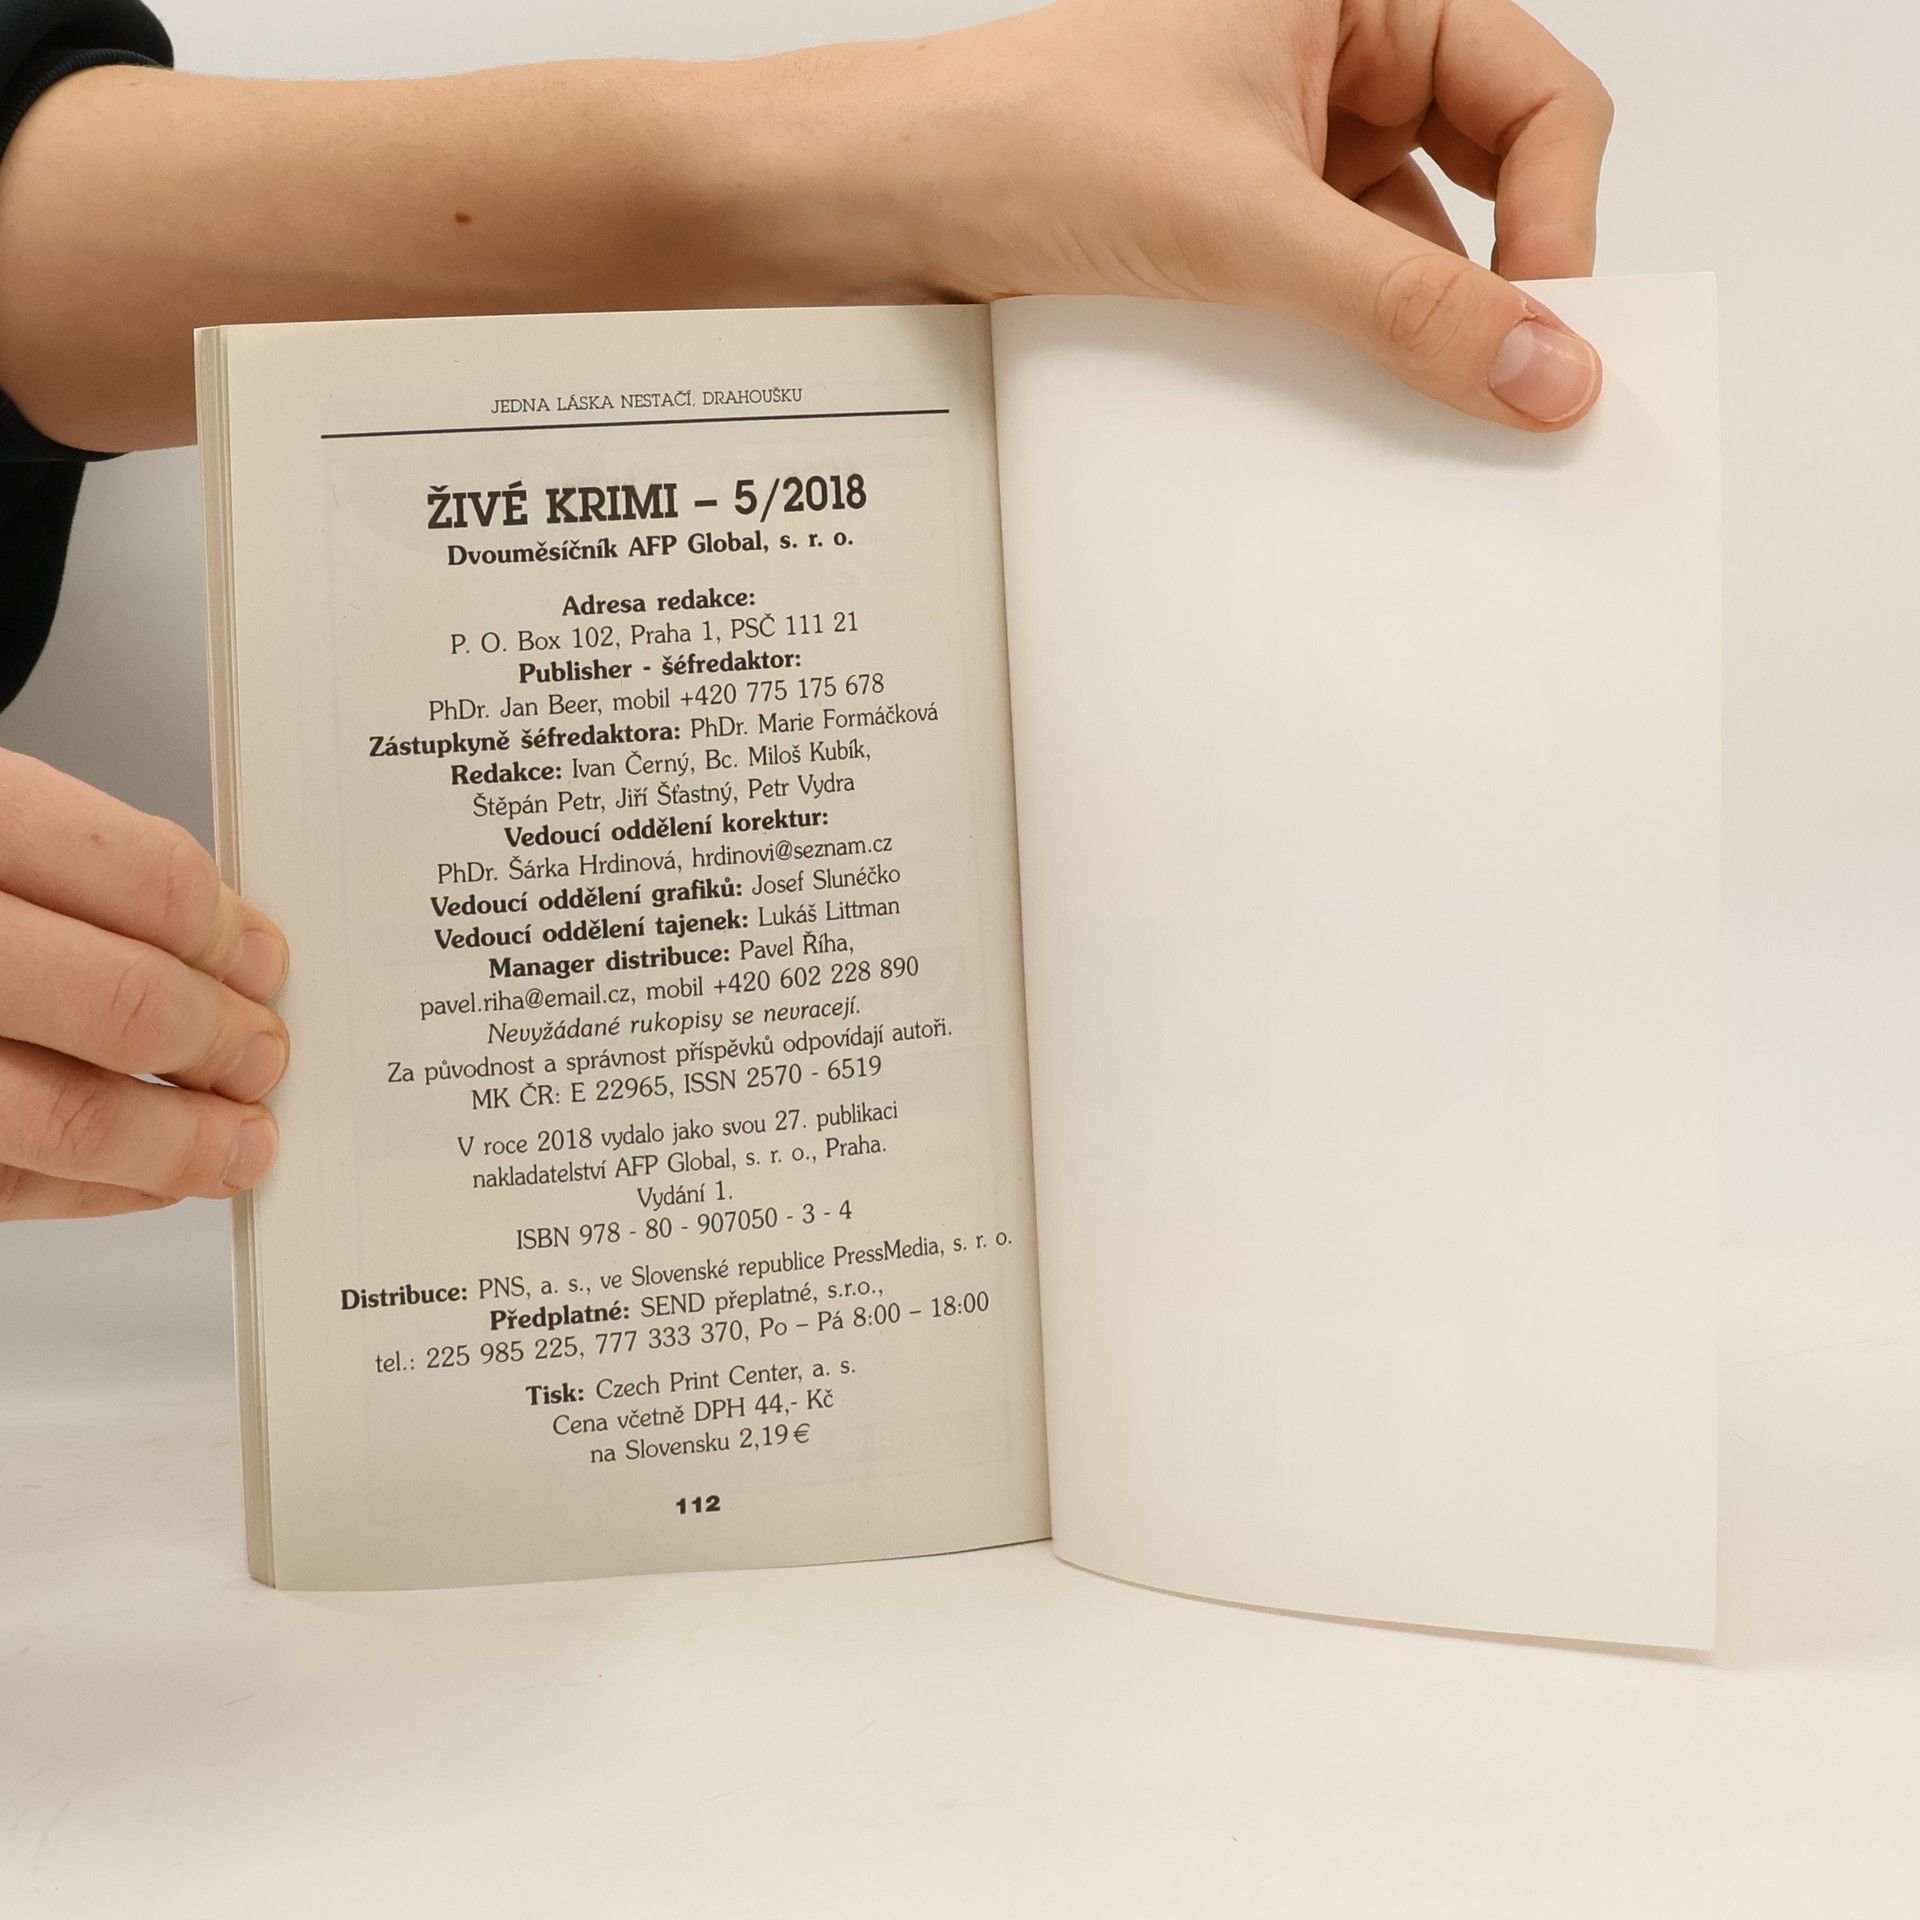 JEDNA LÁSKA NESTAČÍ, DRAHOUŠKU
ŽIVÉ KRIMI – 5/2018
Dvouměsíčník AFP Global, s. r. o.
Adresa redakce:
P. O. Box 102, Praha 1, PSČ 111 21
Publisher - šéfredaktor:
PhDr. Jan Beer, mobil +420 775 175 678
Zástupkyně šéfredaktora: PhDr. Marie Formáčková
Redakce: Ivan Černý, Bc. Miloš Kubík,
Štěpán Petr, Jiří Šťastný, Petr Vydra
Vedoucí oddělení korektur:
PhDr. Šárka Hrdinová, hrdinovi@seznam.cz
Vedoucí oddělení grafiků: Josef Slunéčko
Vedoucí oddělení tajenek: Lukáš Littman
Manager distribuce: Pavel Říha,
pavel.riha@email.cz, mobil +420 602 228 890
Nevyžádané rukopisy se nevracejí.
Za původnost a správnost příspěvků odpovídají autoři.
MK ČR: E 22965, ISSN 2570 - 6519
V roce 2018 vydalo jako svou 27. publikaci
nakladatelství AFP Global, s. r. o., Praha.
Vydání 1.
ISBN 978 - 80 - 907050 - 3 - 4
Distribuce: PNS, a. s., ve Slovenské republice PressMedia, s. r. o.
Předplatné: SEND přeplatné, s.r.o.,
tel.: 225 985 225, 777 333 370, Po – Pá 8:00 – 18:00
Tisk: Czech Print Center, a. s.
Cena včetně DPH 44,- Kč
na Slovensku 2,19 €
112